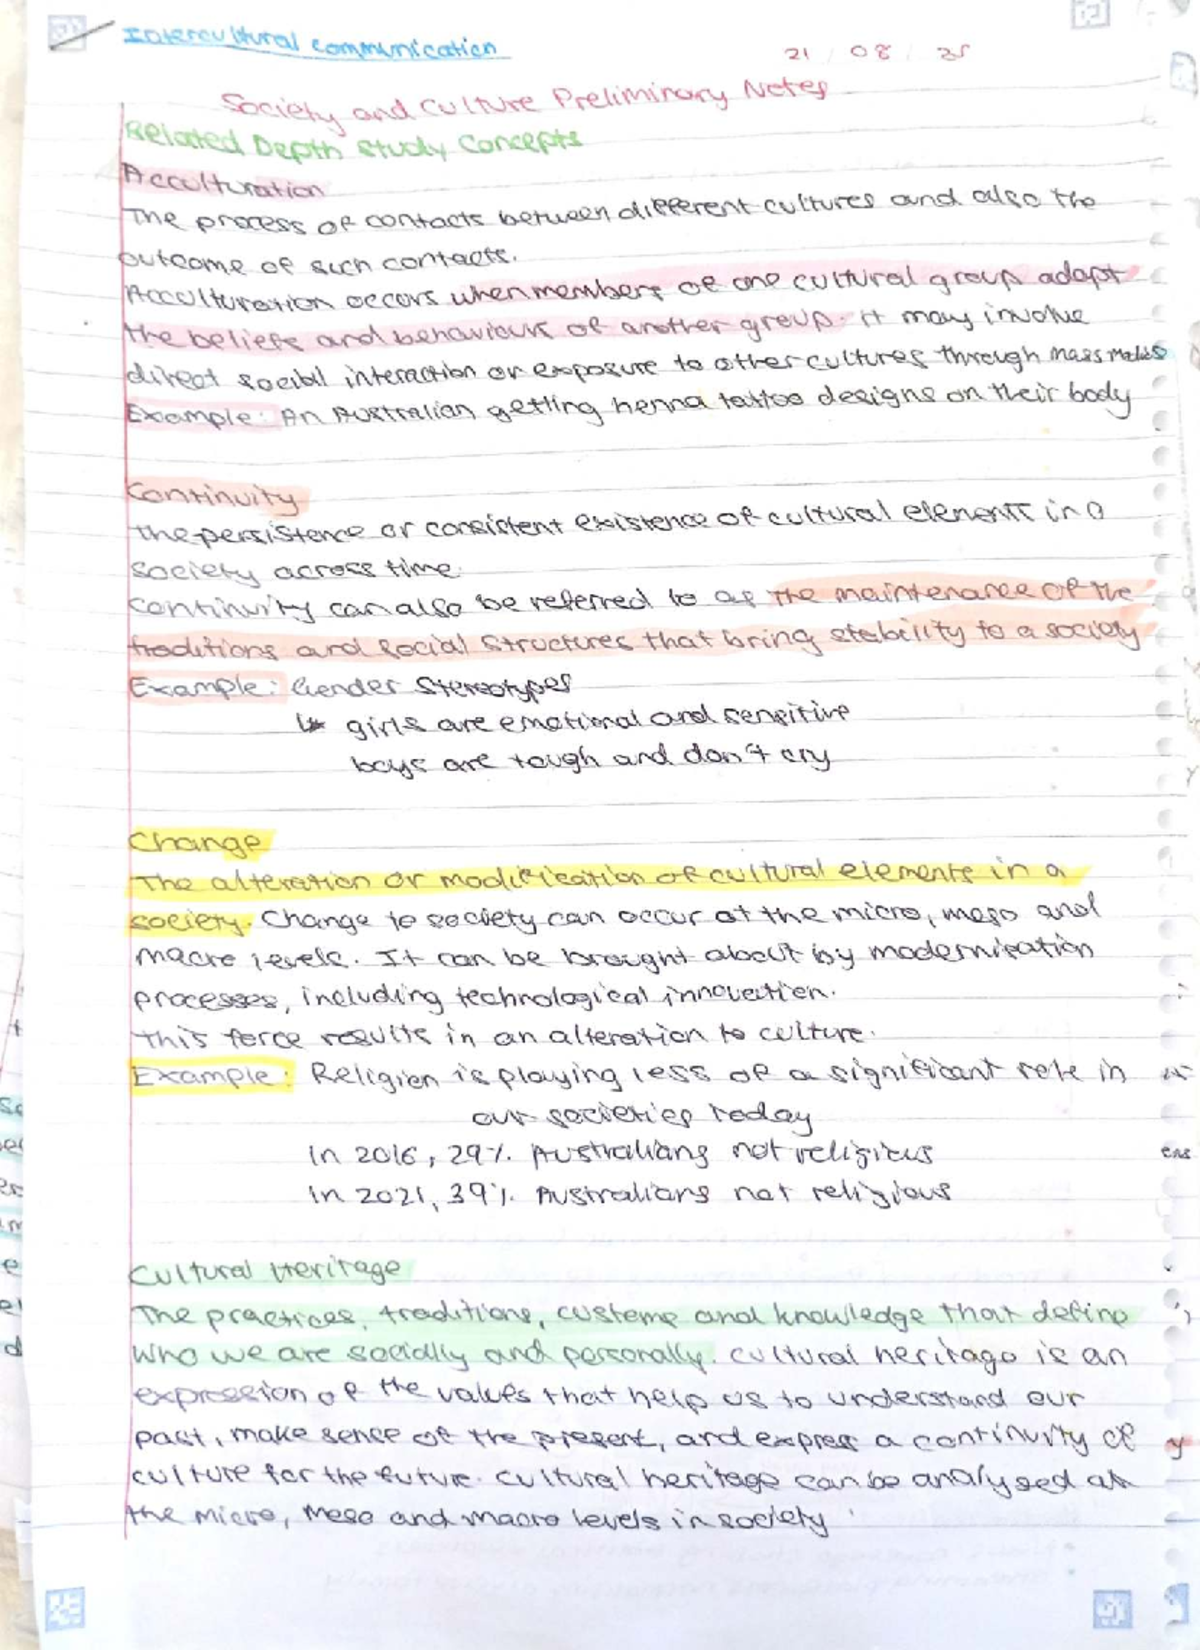 Intercultural communication
21 / 08 / 25
Society and Culture Preliminary Notes
Related Depth Study Concepts
Acculturation
The process of contacts between different cultures and also the
outcome of such contacts.
Acculturation occurs when members of one cultural group adapt
the beliefs and behaviours of another group. It may involve
direct social interaction or exposure to other cultures through mass media
Example: An Australian getting henna tattoo designs on their body
Continuity
the persistence or consistent existence of cultural elements in a
society across time.
Continuity can also be referred to as the maintenance of the
traditions and social structures that bring stability to a society
Example: Gender Stereotypes
↳ girls are emotional and sensitive
boys are tough and don't cry
Change
The alteration or modification of cultural elements in a
society. Change to society can occur at the micro, meso and
macro levels. It can be brought about by modernisation
processes, including technological innovation.
This force results in an alteration to culture.
Example: Religion is playing less of a significant role in
our societies today
In 2016, 29% Australians not religious
In 2021, 39% Australians not religious
Cultural Heritage
The practices, traditions, customs and knowledge that define
who we are socially and personally. Cultural heritage is an
expression of the values that help us to understand our
past, make sense of the present, and express a continuity of
culture for the future. Cultural heritage can be analysed at
the micro, meso and macro levels in society